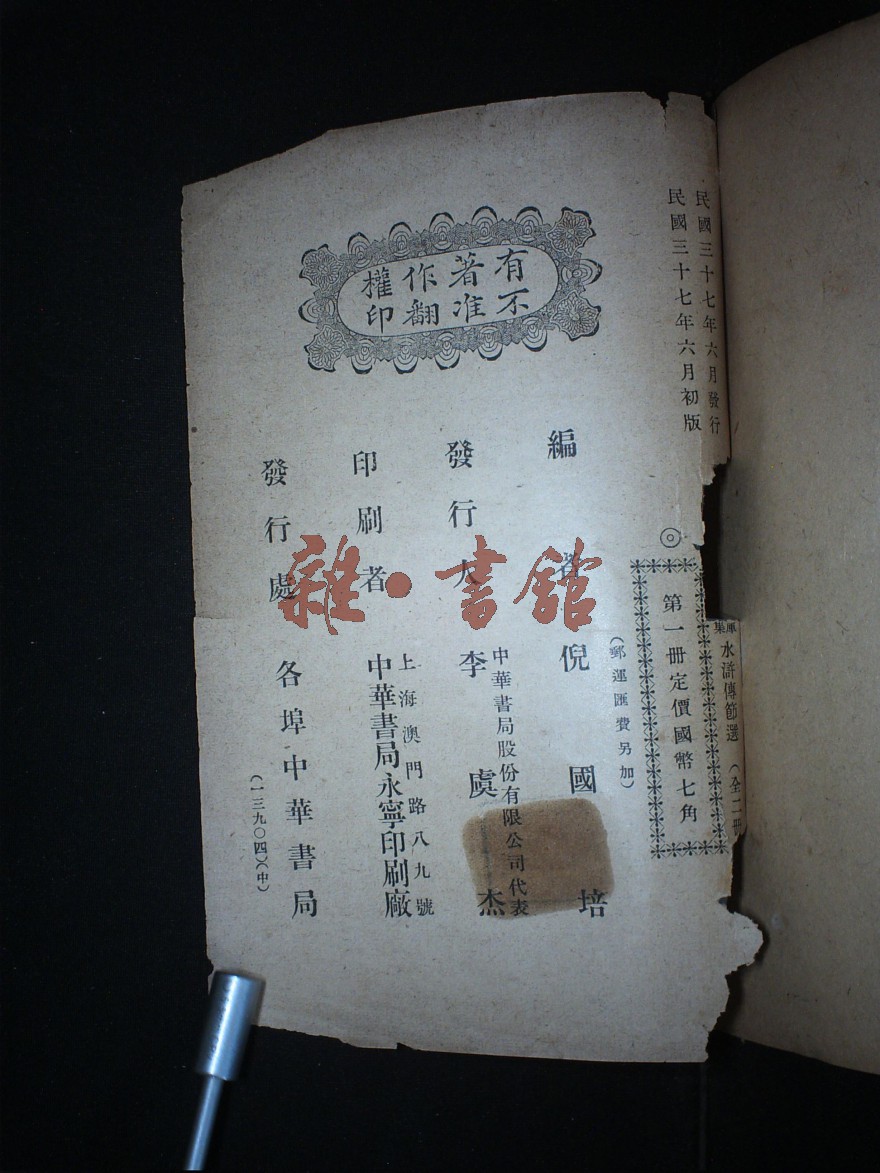 民國三十七年六月發行
民國三十七年六月初版
庫集
水滸傳節選（全二冊
◎第一冊定價國幣七角
（郵運匯費另加）
有著作權
不准翻印
編者 倪國培
發行人 李虞杰
中華書局股份有限公司代表
印刷者 中華書局永寧印刷廠
上海澳門路八九號
發行處 各埠中華書局
（一三九〇四）（中）
雜·書館